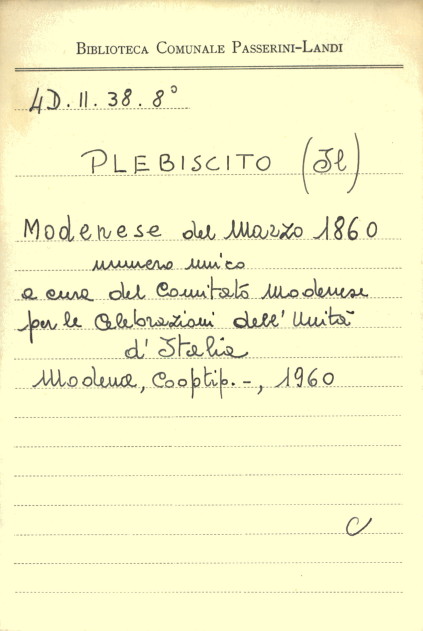 BIBLIOTECA COMUNALE PASSERINI-LANDI
4D.II.38.8°
PLEBISCITO (Il)
Modenese del Marzo 1860
numero unico
a cura del Comitato Modenese
per le Celebrazioni dell'Unità
d'Italia
Modena, Cooptip.-, 1960
C